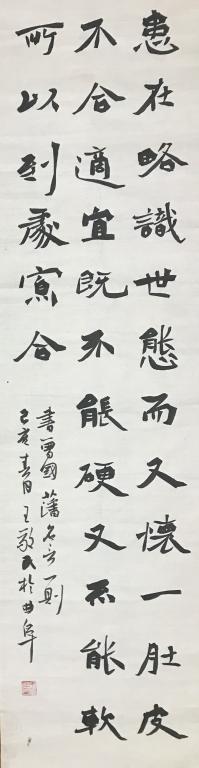 患在略識世態而又懷一肚皮
不合適宜既不能硬又不能軟
所以到處寡合
書曾國藩名言一則
己亥春月王敬民於曲阜